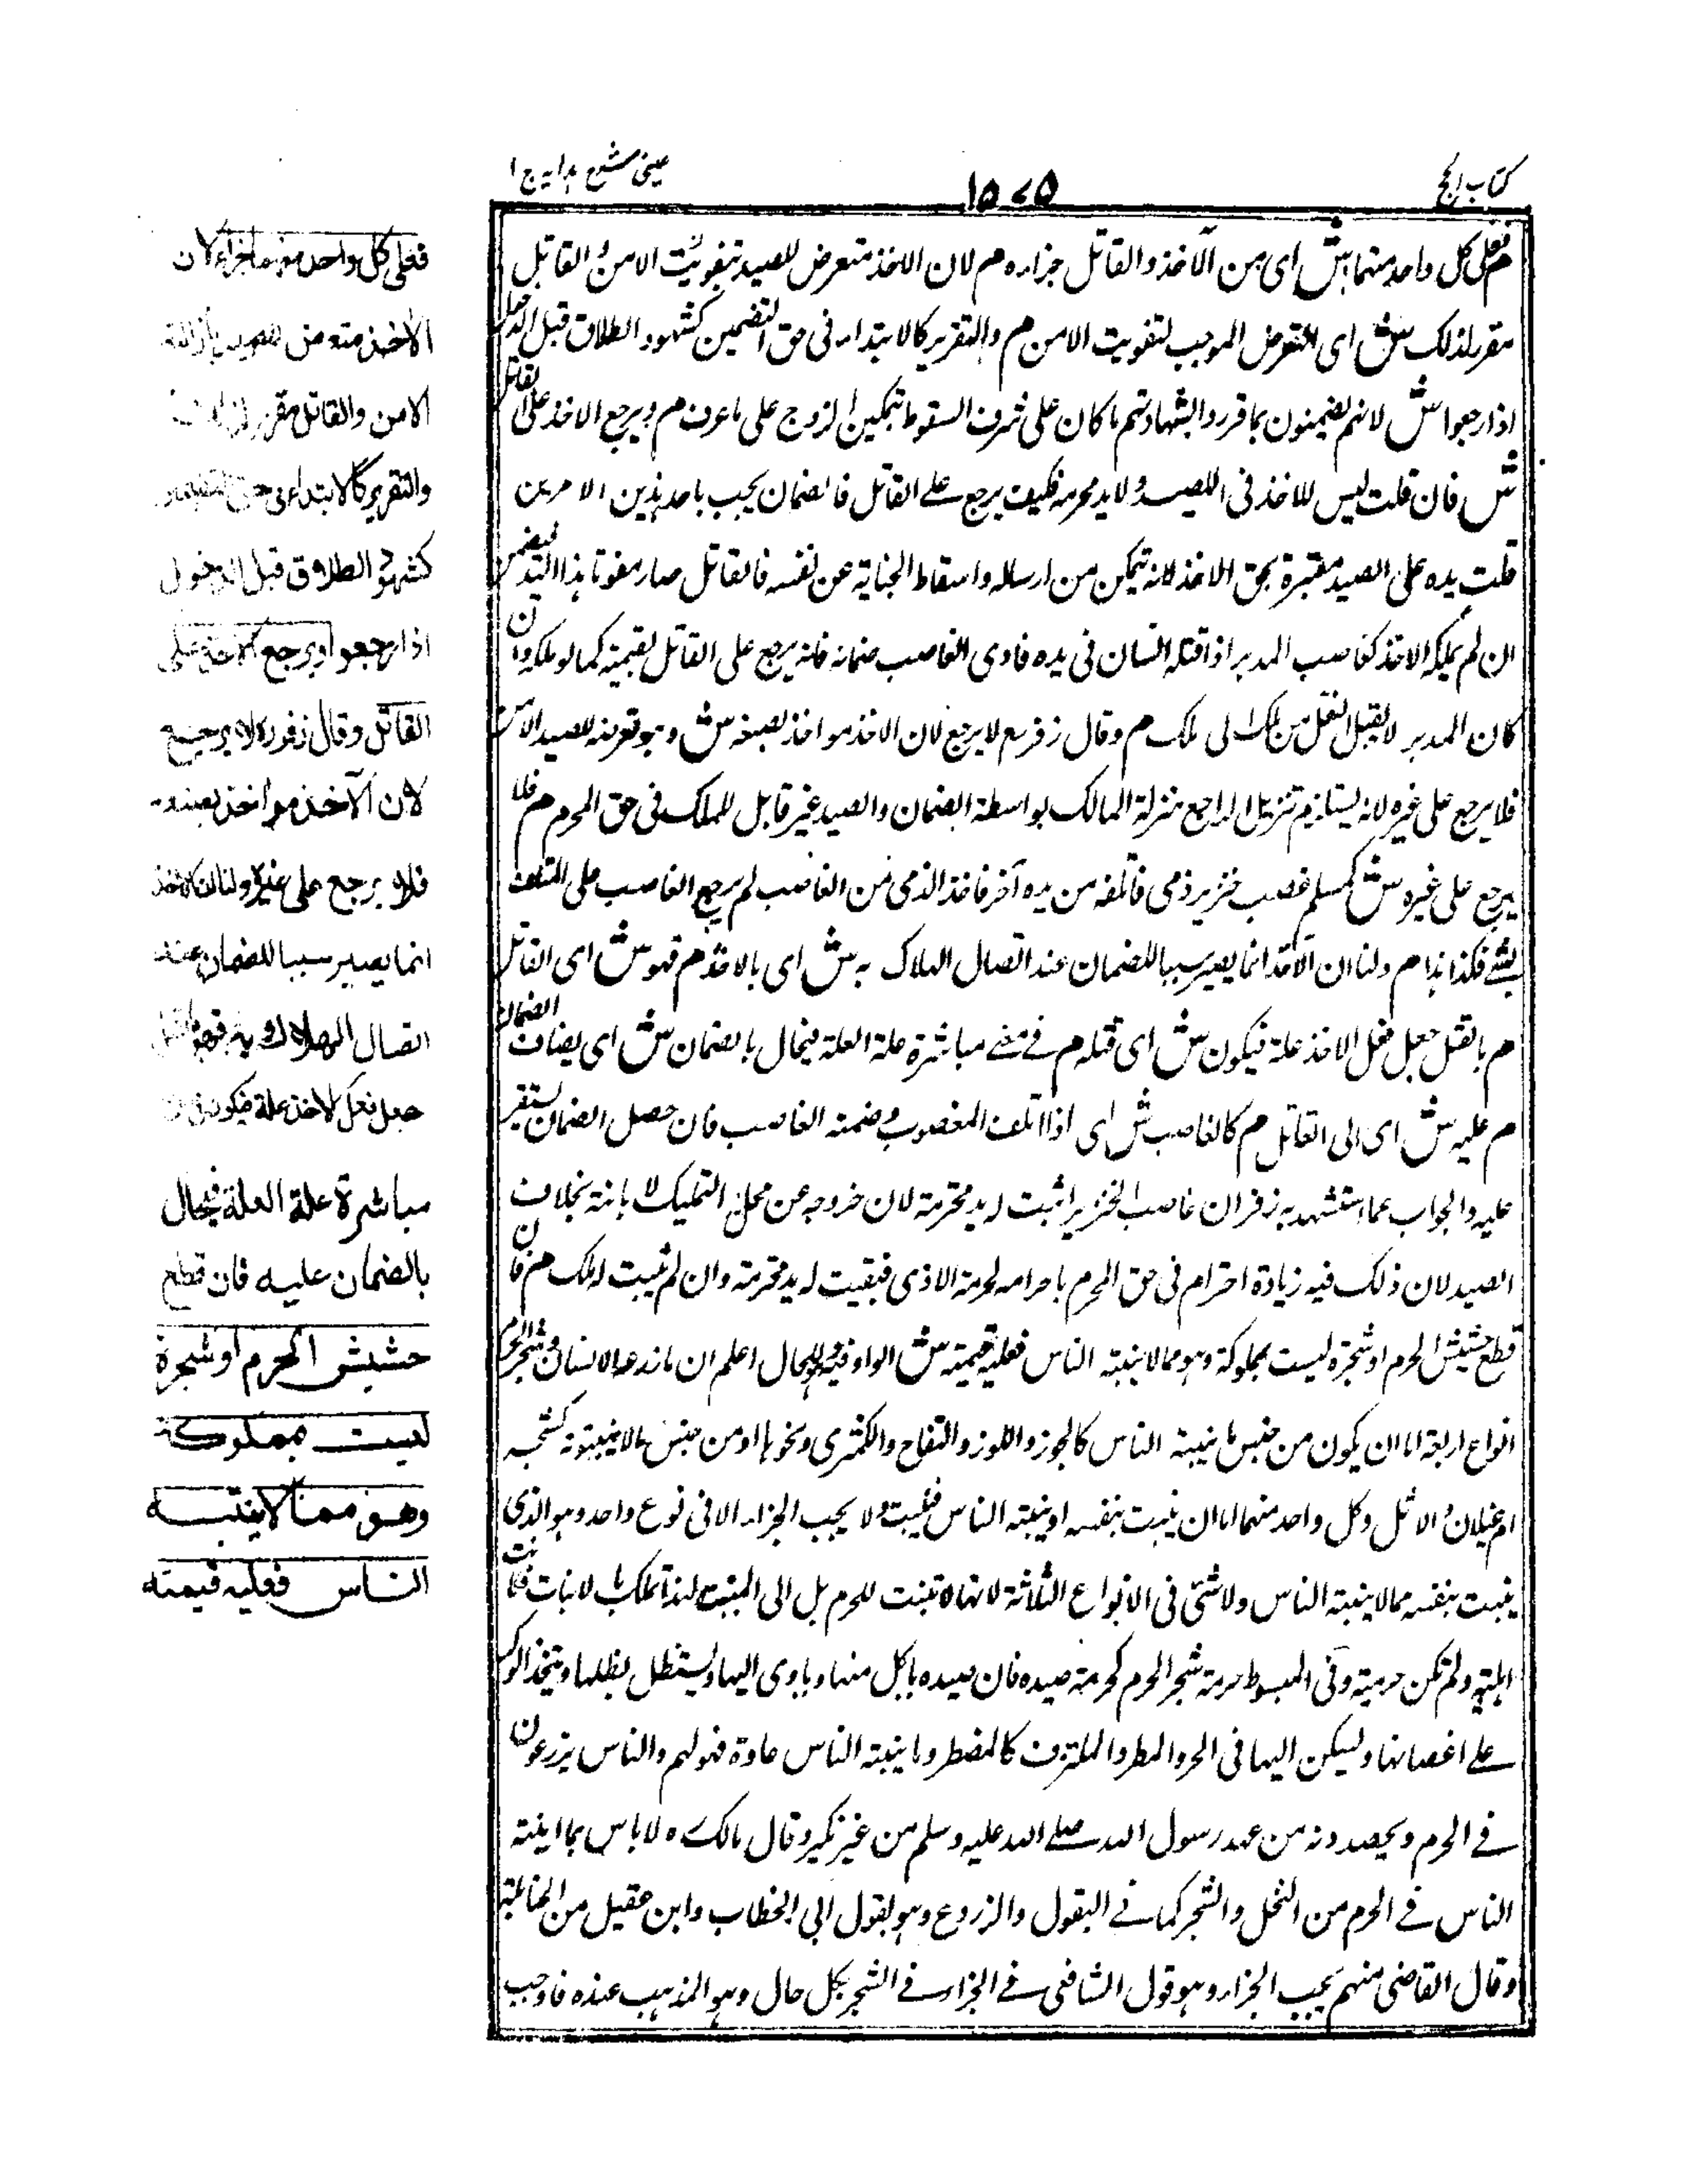 كتاب الحج
١٥٧٥
عينى شرح هدايه ج ١
م فعلى كل واحد منهما ش اى من الآخذ والقاتل جزاره م لان الاخذ متعرض للصيد بتفويت الامن والقاتل
مقرر لذلك ش اى التعرض الموجب لتفويت الامن م والتقرير كالابتداء فى حق التضمين كشهود الطلاق قبل الدخول
اذا رجعوا ش لانهم يضمنون بما قرروا بشهادتهم ما كان على شرف السقوط بتمكين الزوج على ما عرف م ويرجع الاخذ على القاتل
ش فان قلت ليس للاخذ فى الصيد ولا يد محرمة فكيف يرجع على القاتل فالضمان يجب باحد هذين الامرين
قلت يده على الصيد معتبرة بحق الاخذ لانه يتمكن من ارساله واسقاط الجناية عن نفسه فالقاتل صار مفوتا هذا اليد فيضمن
ان لم يملكه الاخذ كغاصب المدبر اذا قتله انسان فى يده فادى الغاصب ضمانه فانه يرجع على القاتل بقيمته كما لو ملكه وان
كان المدبر لا يقبل النقل من ملك الى ملك م وقال زفر رح لا يرجع لان الاخذ مواخذ بصنعه ش وهو تعرضه للصيد الامن
فلا يرجع على غيره لانه يستلزم تنزيل الراجع منزلة المالك بواسطة الضمان والصيد غير قابل للملك فى حق المحرم م فلا
يرجع على غيره ش كمسلم غصب خنزير ذمى فاتلفه من يده آخر فاخذ الذمى من الغاصب لم يرجع الغاصب على المتلف
بشئ فكذا هذا م ولنا ان الآخذ انما يصير سببا للضمان عند اتصال الهلاك به ش اى بالاخذ م فهو ش اى القاتل
م بالقتل جعل فعل الاخذ علة فيكون ش اى قتله م فى معنى مباشرة علة العلة فيحال بالضمان ش اى يضاف الضمان
م عليه ش اى الى القاتل م كالغاصب ش اى اذا اتلف المغصوب وضمنه الغاصب فان حصل الضمان يستقر
عليه والجواب عما استشهد به زفر ان غاصب الخنزير اثبت له يد محترمة لان خروجه عن محل التمليك لا بانته بخلاف
الصيد لان ذلك فيه زيادة احترام فى حق المحرم باحرامه لحرمة الاذى فبقيت له يد محترمة وان لم يثبت له ملك م فان
قطع حشيش الحرم او شجرة ليست بمملوكة وهو مما لا ينبته الناس فعليه قيمته ش الواو فيه للحال اعلم ان ما زرعه الانسان وشجر الحرم
انواع اربعة اما ان يكون من جنس ما ينبته الناس كالجوز واللوز والتفاح والكمثرى ونحوها او من جنس ما لا ينبتونه كشجر
ام غيلان والاثل وكل واحد منهما اما ان ينبت بنفسه او ينبته الناس فينبت ولا يجب الجزاء الا فى نوع واحد وهو الذى
ينبت بنفسه مما لا ينبته الناس ولا شئ فى الانواع الثلاثة لانها لا تنبت للحرم بل الى المنبت لهذا تملك بالانبات فكانت
اهلية ولم تكن حرمية وفى المبسوط حرمة شجر الحرم كحرمة صيده فان صيده ياكل منها وياوى اليها ويستظل بظلها ويتخذ الوكر
على اغصانها ويسكن اليها فى الحر والمطر والملتزف كالمضطر وما ينبته الناس عادة فهو لهم والناس يزرعون
فى الحرم ويحصدونه من عهد رسول الله صلى الله عليه وسلم من غير نكير وقال مالك ره لا باس بما اينته
الناس فى الحرم من النخل والشجر كما فى البقول والزروع وهو لقول ابى الخطاب وابن عقيل من الحنابلة
وقال القاضى منهم يجب الجزاء وهو قول الشافعى فى الجزاء فى الشجر بكل حال وهو المذهب عنده فاوجب
فعلى كل واحد منهما جزاء لان
الأخذ متعرض للصيد بازالة
الامن والقاتل مقرر لذلك
والتقرير كالابتداء فى حق التضمين
كشهود الطلاق قبل الدخول
اذا رجعوا ويرجع الاخذ على
القاتل وقال زفر ره لا يرجع
لان الآخذ مواخذ بصنعه
فلا يرجع على غيره ولنا ان الاخذ
انما يصير سببا للضمان عند
اتصال الهلاك به فهو بالقتل
جعل فعل الاخذ علة فيكون فى
مباشرة علة العلة فيحال
بالضمان عليه فان قطع
حشيش الحرم او شجرة
ليست بمملوكة
وهو مما لا ينبته
الناس فعليه قيمته